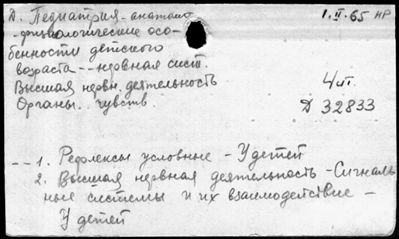 Д. Педиатрия - анатомо
1.II.65 НР
- физиологические осо-
бенности детского
возраста -- нервная сист.
Высшая нервн. деятельность
4 л.
Органы чувств
Д 32833
-- 1. Рефлексы условные - У детей
2. Высшая нервная деятельность - Сигналь
ные системы и их взаимодействие -
У детей